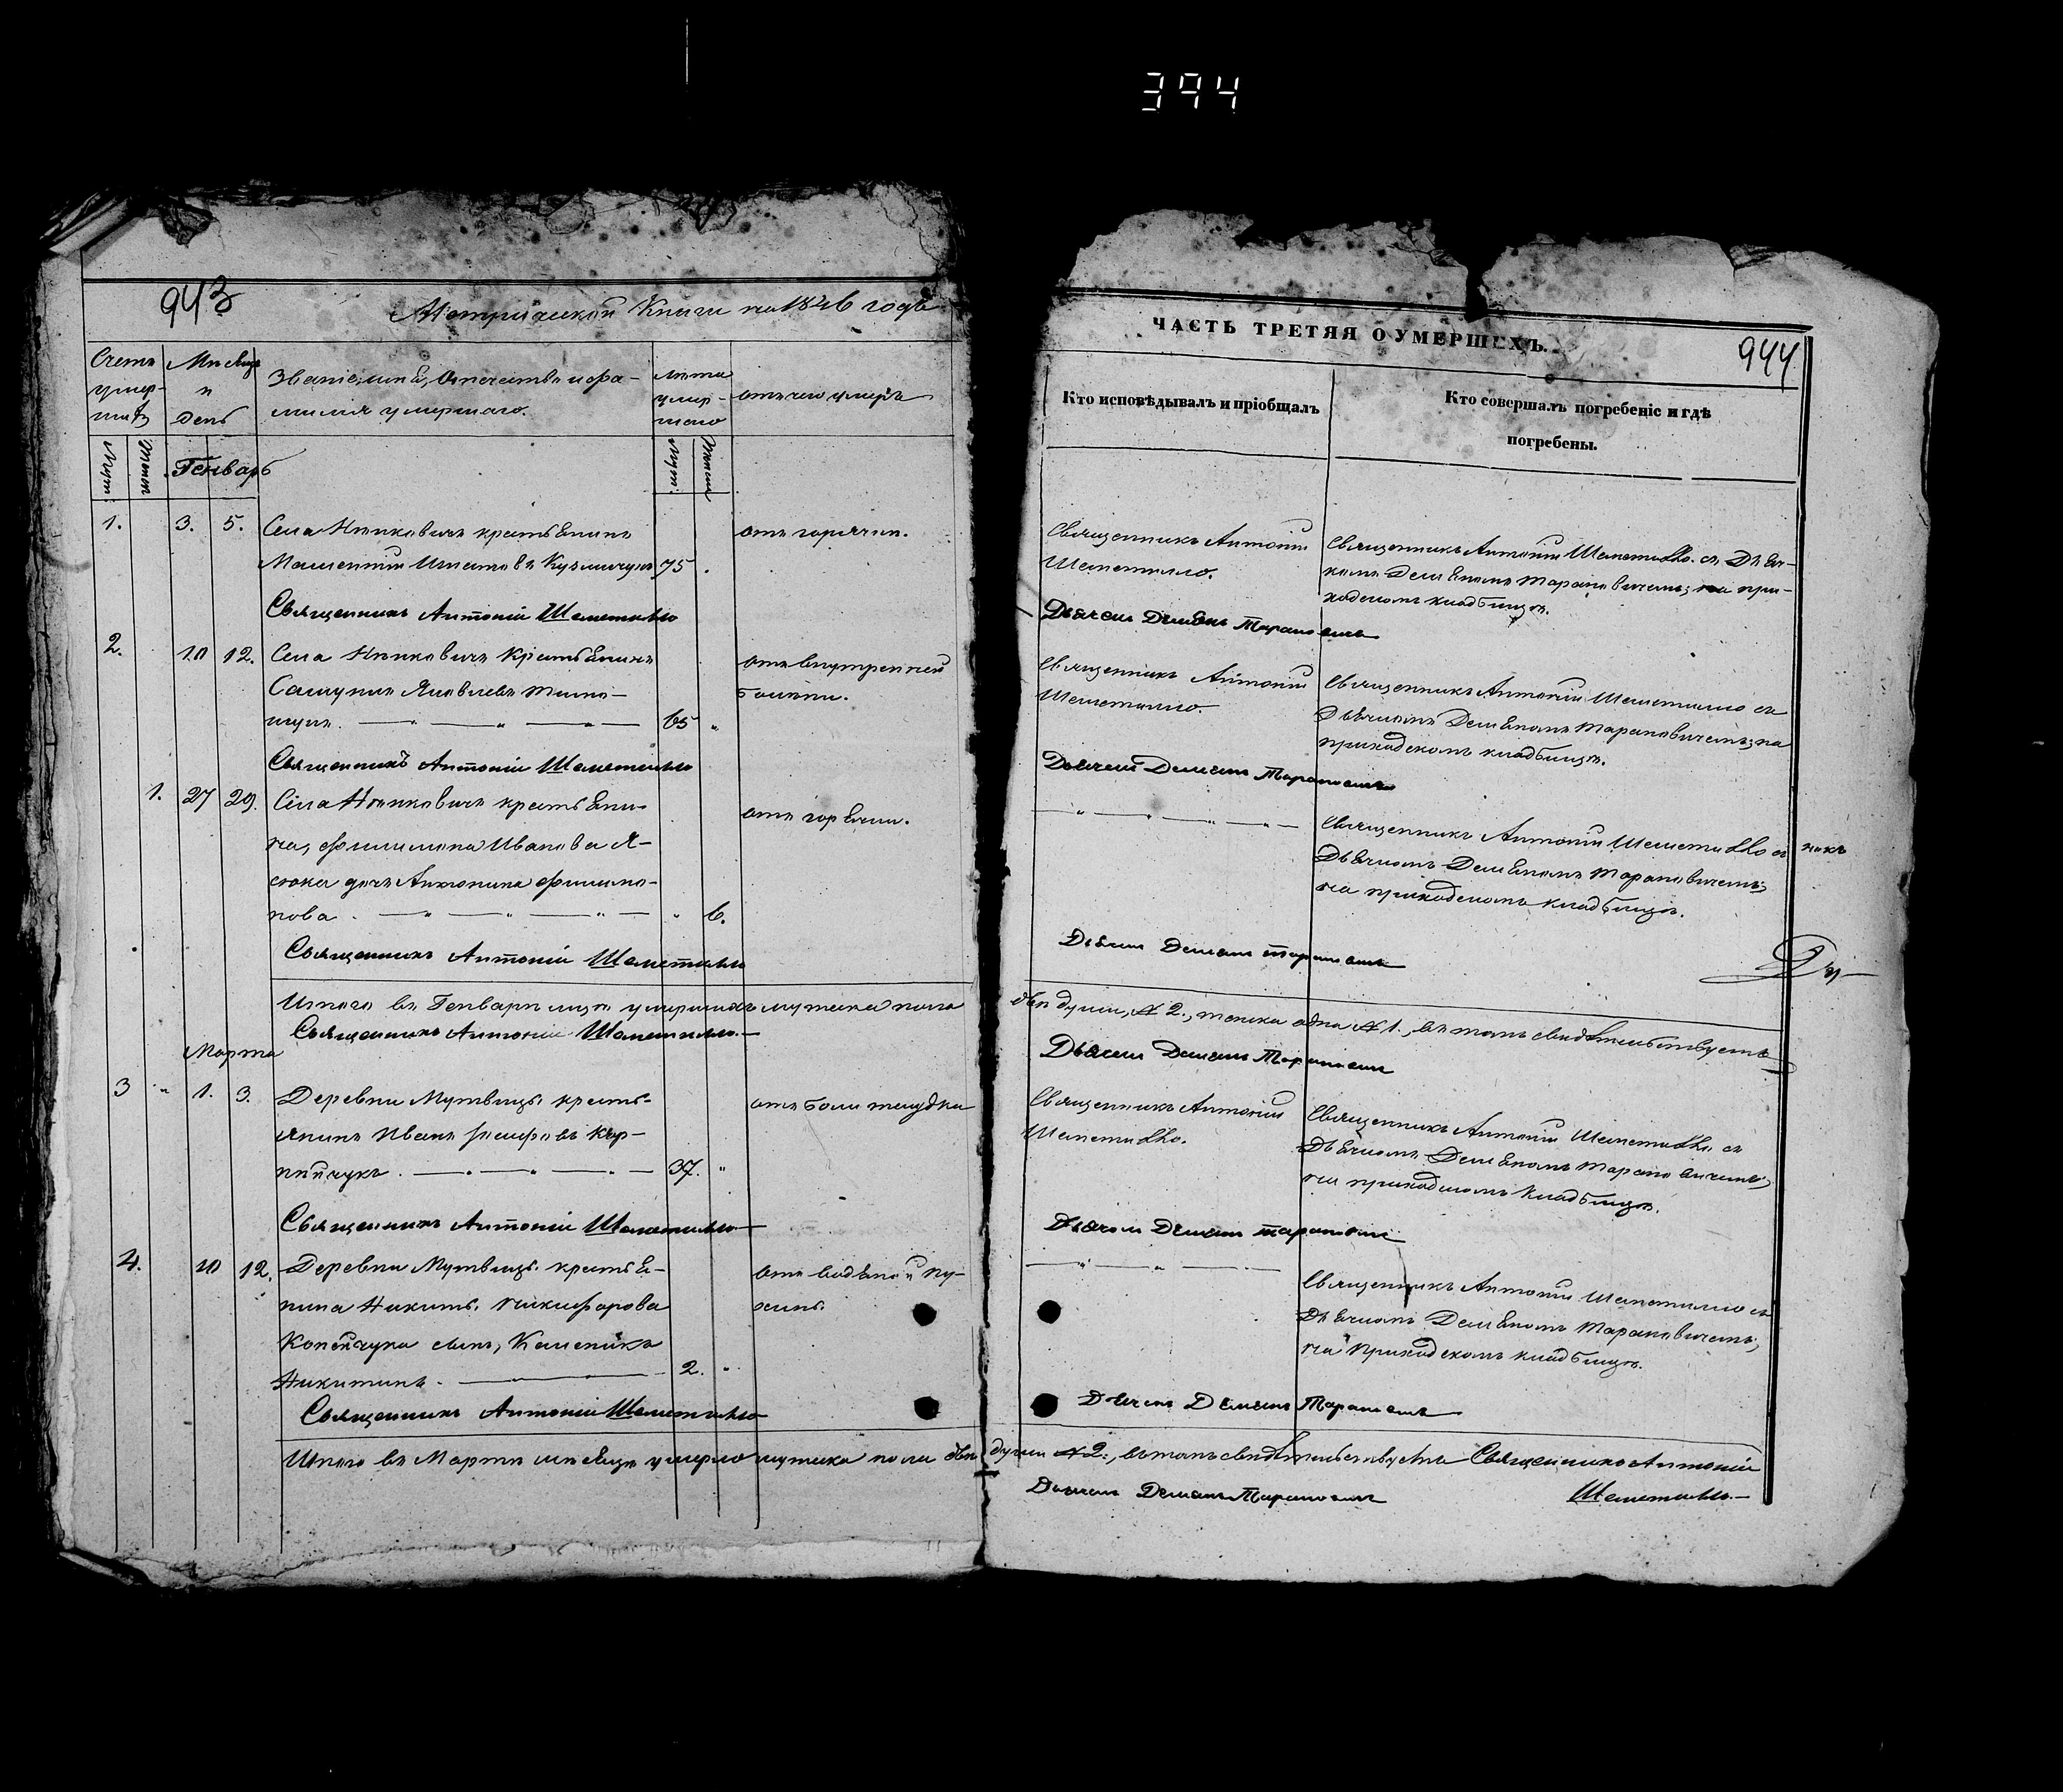 394
943
Метрической Книги на 1846 годъ
Счетъ умер-шихъ
Мѣсяцъ и День
Званіе, имя, Отечество и фа-
милія умершаго.
Лѣта умер-шаго
отъ чего умеръ
Муж:
Женск
Генварь
Муж:
Женск
1. 3. 5. Села Нѣнковичъ крестьянинъ отъ горячки.
Игнатовъ Кузмичукъ 75
Священникъ Антоній Шеметилло
2. 10 12. Села Нѣнковичъ Крестьянинъ отъ внутренней
Яковлевъ болѣзни.
65 "
Священникъ Антоній Шеметилло
1. 27 29. Села Нѣнковичъ крестьяни- отъ горячки.
на, Филимона Иванова Я-
дочь Антонина Филимо-
нова. " 6.
Священникъ Антоній Шеметилло
Итого въ Генварѣ умершихъ мужеска пола
Священникъ Антоній Шеметилло.
Марта
3 " 1. 3. Деревни Мутвицы кресть- отъ боли желудка
янинъ Иванъ
37. "
Священникъ Антоній Шеметилло
4. 10 12. Деревни Мутвицы крестья- отъ водяной пу-
нина Никиты Никифорова
сынъ,
Никитинъ. 2. "
Священникъ Антоній Шеметилло
Итого въ Мартѣ мѣсяцѣ умерло мужеска пола двѣ
ЧАСТЬ ТРЕТЯЯ О УМЕРШИХЪ.
944
Кто исповѣдывалъ и пріобщалъ
Кто совершалъ погребеніе и гдѣ
погребены.
Священникъ Антоній
Шеметилло.
Священникъ Антоній Шеметилло съ Дьяч-
комъ Демьяномъ Тарановичемъ; на при-
ходскомъ кладбищѣ.
Дьячекъ Демьянъ Тарановичъ
Священникъ Антоній
Шеметилло.
Священникъ Антоній Шеметилло съ
Дьячкомъ Демьяномъ Тарановичемъ; на
приходскомъ кладбищѣ.
Дьячекъ Демьянъ Тарановичъ
Священникъ Антоній Шеметилло съ
Дьячкомъ Демьяномъ Тарановичемъ;
на приходскомъ кладбищѣ.
Дьячекъ Демьянъ Тарановичъ
двѣ души, № 2., женска одна № 1., въ томъ свидѣтельствуемъ
Дьячекъ Демьянъ Тарановичъ
Священникъ Антоній
Шеметилло.
Священникъ Антоній Шеметилло съ
Дьячкомъ Демьяномъ Тарановичемъ;
на приходскомъ кладбищѣ.
Дьячекъ Демьянъ Тарановичъ
Священникъ Антоній Шеметилло съ
Дьячкомъ Демьяномъ Тарановичемъ;
на приходскомъ кладбищѣ.
Дьячекъ Демьянъ Тарановичъ
души № 2., въ томъ свидѣтельствуемъ Священникъ Антоній
Шеметилло.
Дьячекъ Демьянъ Тарановичъ